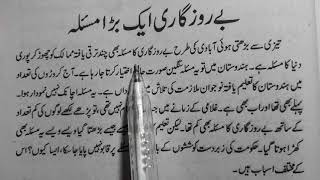 بے روزگاری ایک بڑا مسئلہ
تیزی سے بڑھتی ہوئی آبادی کی طرح بے روزگاری کا مسئلہ بھی چند ترقی یافتہ ممالک کو چھوڑ کر پوری
دنیا کا مسئلہ ہے۔ ہندوستان میں تو یہ مسئلہ سنگین صورت حال اختیار کرتا جا رہا ہے۔ آج کروڑوں کی تعداد
میں ہندوستان کا تعلیم یافتہ نوجوان ملازمت کی تلاش میں ہے۔ یہ مسئلہ اچانک نہیں نمودار ہوا۔
پہلے بھی تھا اور اب بھی ہے۔ غلامی کے زمانے میں تعلیم کی کمی تھی، تو پڑھے لکھے لوگوں کی کم تعداد
کے ساتھ بے روزگاری کا مسئلہ بھی کم تھا۔ لیکن تعلیم جیسے جیسے بڑھتا گیا ویسے ویسے یہ مسئلہ بھی
کھڑا ہوتا گیا۔ حکومت کی زبردست کوششوں کے قابو نہیں پایا جا سکا، ایسا کیوں؟ اس
کے مختلف اسباب ہیں۔